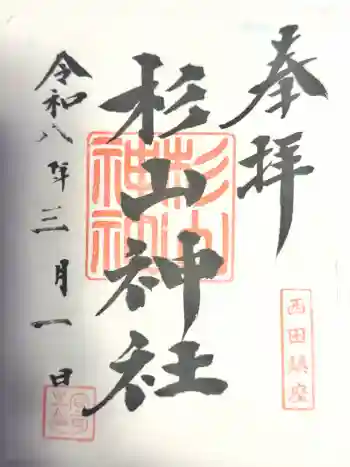 奉拝
西田鎮座
杉山神社
杉山神社
令和八年三月一日